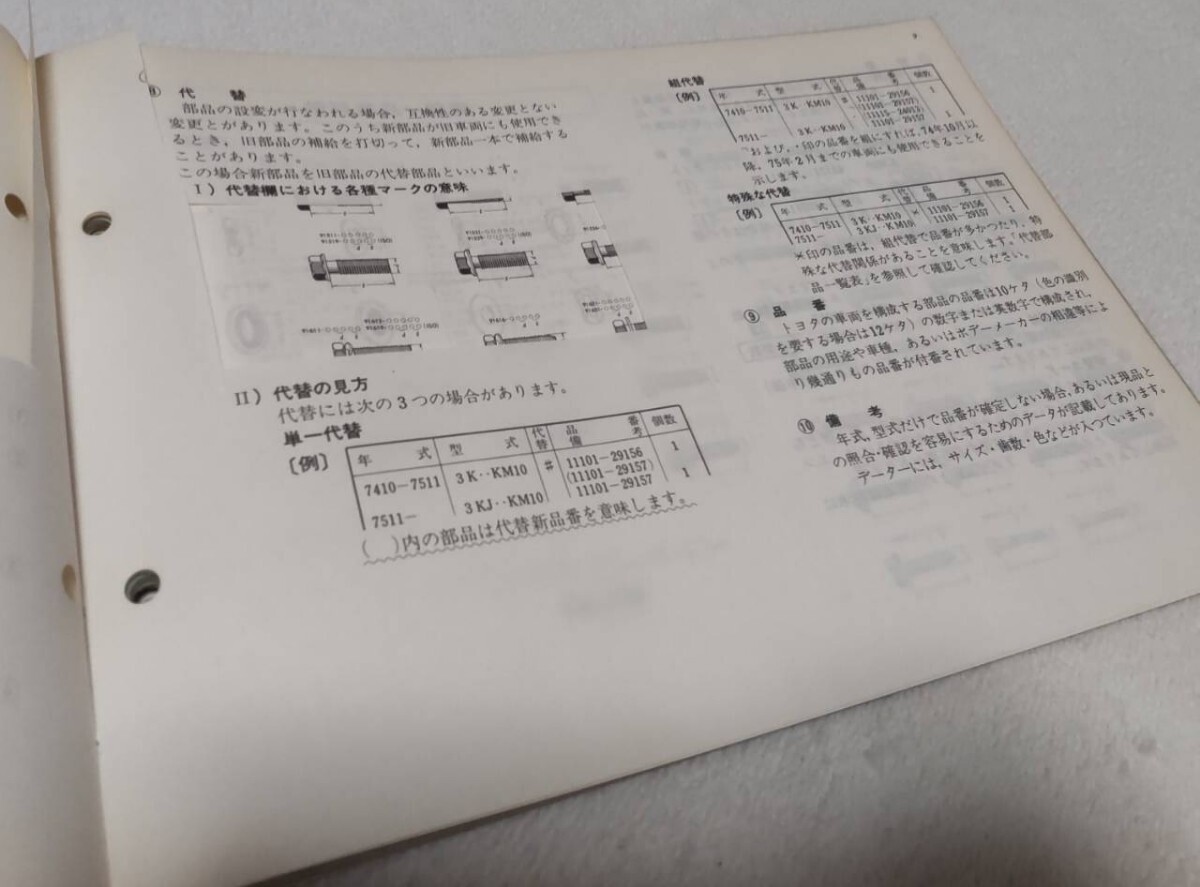 ⑧ 代替
部品の設変が行なわれる場合，互換性のある変更とない
変更とがあります。このうち新部品が旧車両にも使用でき
るとき，旧部品の補給を打切って，新部品一本で補給する
ことがあります。
この場合新部品を旧部品の代替部品といいます。
Ⅰ）代替欄における各種マークの意味
Ⅱ）代替の見方
代替には次の3つの場合があります。
単一代替
〔例〕
年式 型式 代替 品番 備考 個数
7410-7511 3K‥KM10 # 11101-29156 1
(11101-29157)
7511- 3KJ‥KM10 11101-29157 1
( )内の部品は代替新品番を意味します。
組代替
〔例〕
年式 型式 代替 品番 備考 個数
7410-7511 3K‥KM10 # 11101-29156 1
(11101-29157)
7511- 3K‥KM10 11101-29157 1
および，・印の品番を組にすれば，74年10月以
降，75年2月までの車両にも使用できることを
示します。
特殊な代替
〔例〕
年式 型式 代替 品番 備考 個数
7410-7511 3K‥KM10 ＊ 11101-29156 1
7511- 3KJ‥KM10 11101-29157 1
＊印の品番は，組代替で品番が多かつたり，特
殊な代替関係があることを意味します。「代替部
品一覧表」を参照して確認してください。
⑨ 品番
トヨタの車両を構成する部品の品番は10ケタ（色の識別
を要する場合は12ケタ）の数字または英数字で構成され，
部品の用途や車種，あるいはボデーメーカーの相違等によ
り幾通りもの品番が付番されています。
⑩ 備考
年式，型式だけで品番が確定しない場合，あるいは現品と
の照合・確認を容易にするためのデータが記載してあります。
データーには，サイズ・歯数・色などが入つています。